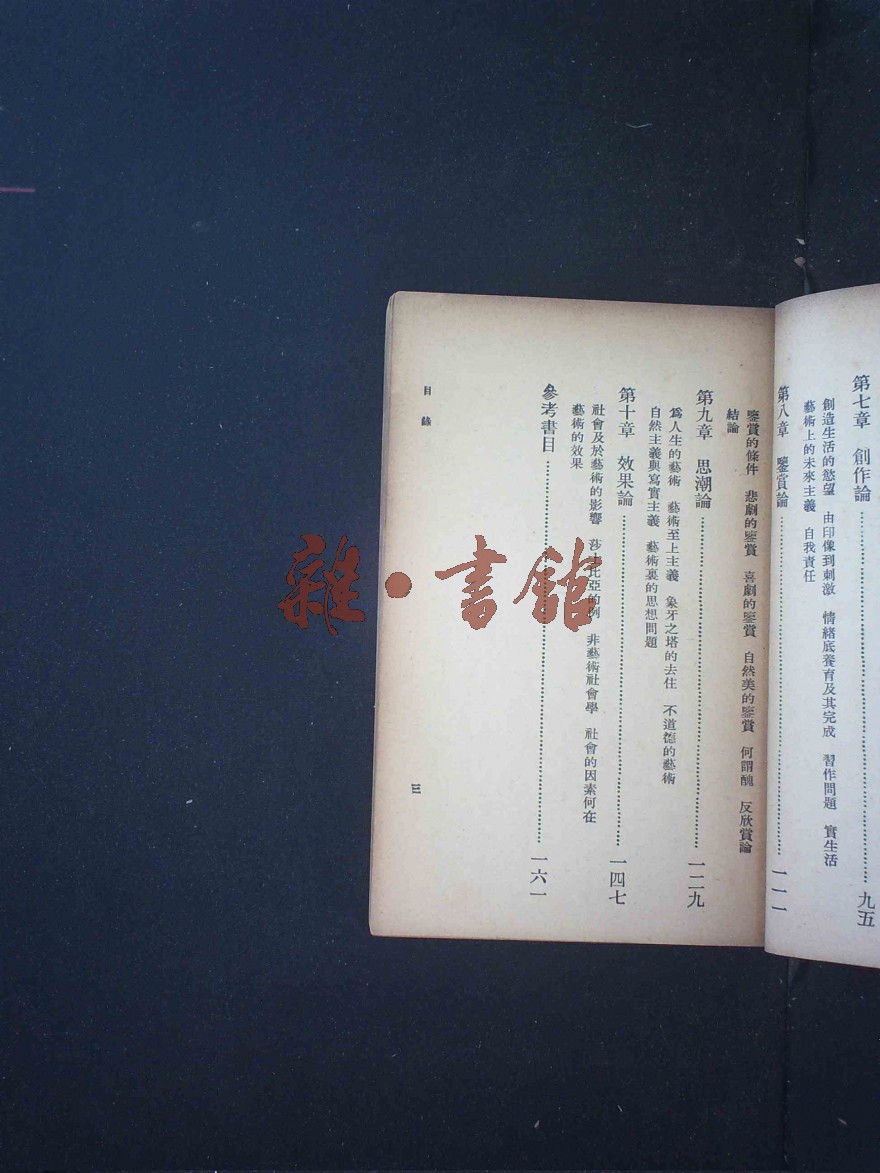 第七章　創作論……九五
創造生活的慾望　由印像到刺激　情緒底養育及其完成　習作問題　實生活
藝術上的未來主義　自我責任
第八章　鑒賞論……一一一
鑒賞的條件　悲劇的鑒賞　喜劇的鑒賞　自然美的鑒賞　何謂醜　反欣賞論
結論
第九章　思潮論……一二九
爲人生的藝術　藝術至上主義　象牙之塔的去住　不道德的藝術
自然主義與寫實主義　藝術裏的思想問題
第十章　效果論……一四七
社會及於藝術的影響　莎士比亞的例　非藝術社會學　社會的因素何在
藝術的效果
參考書目……一六一
目錄
三
雜·書館